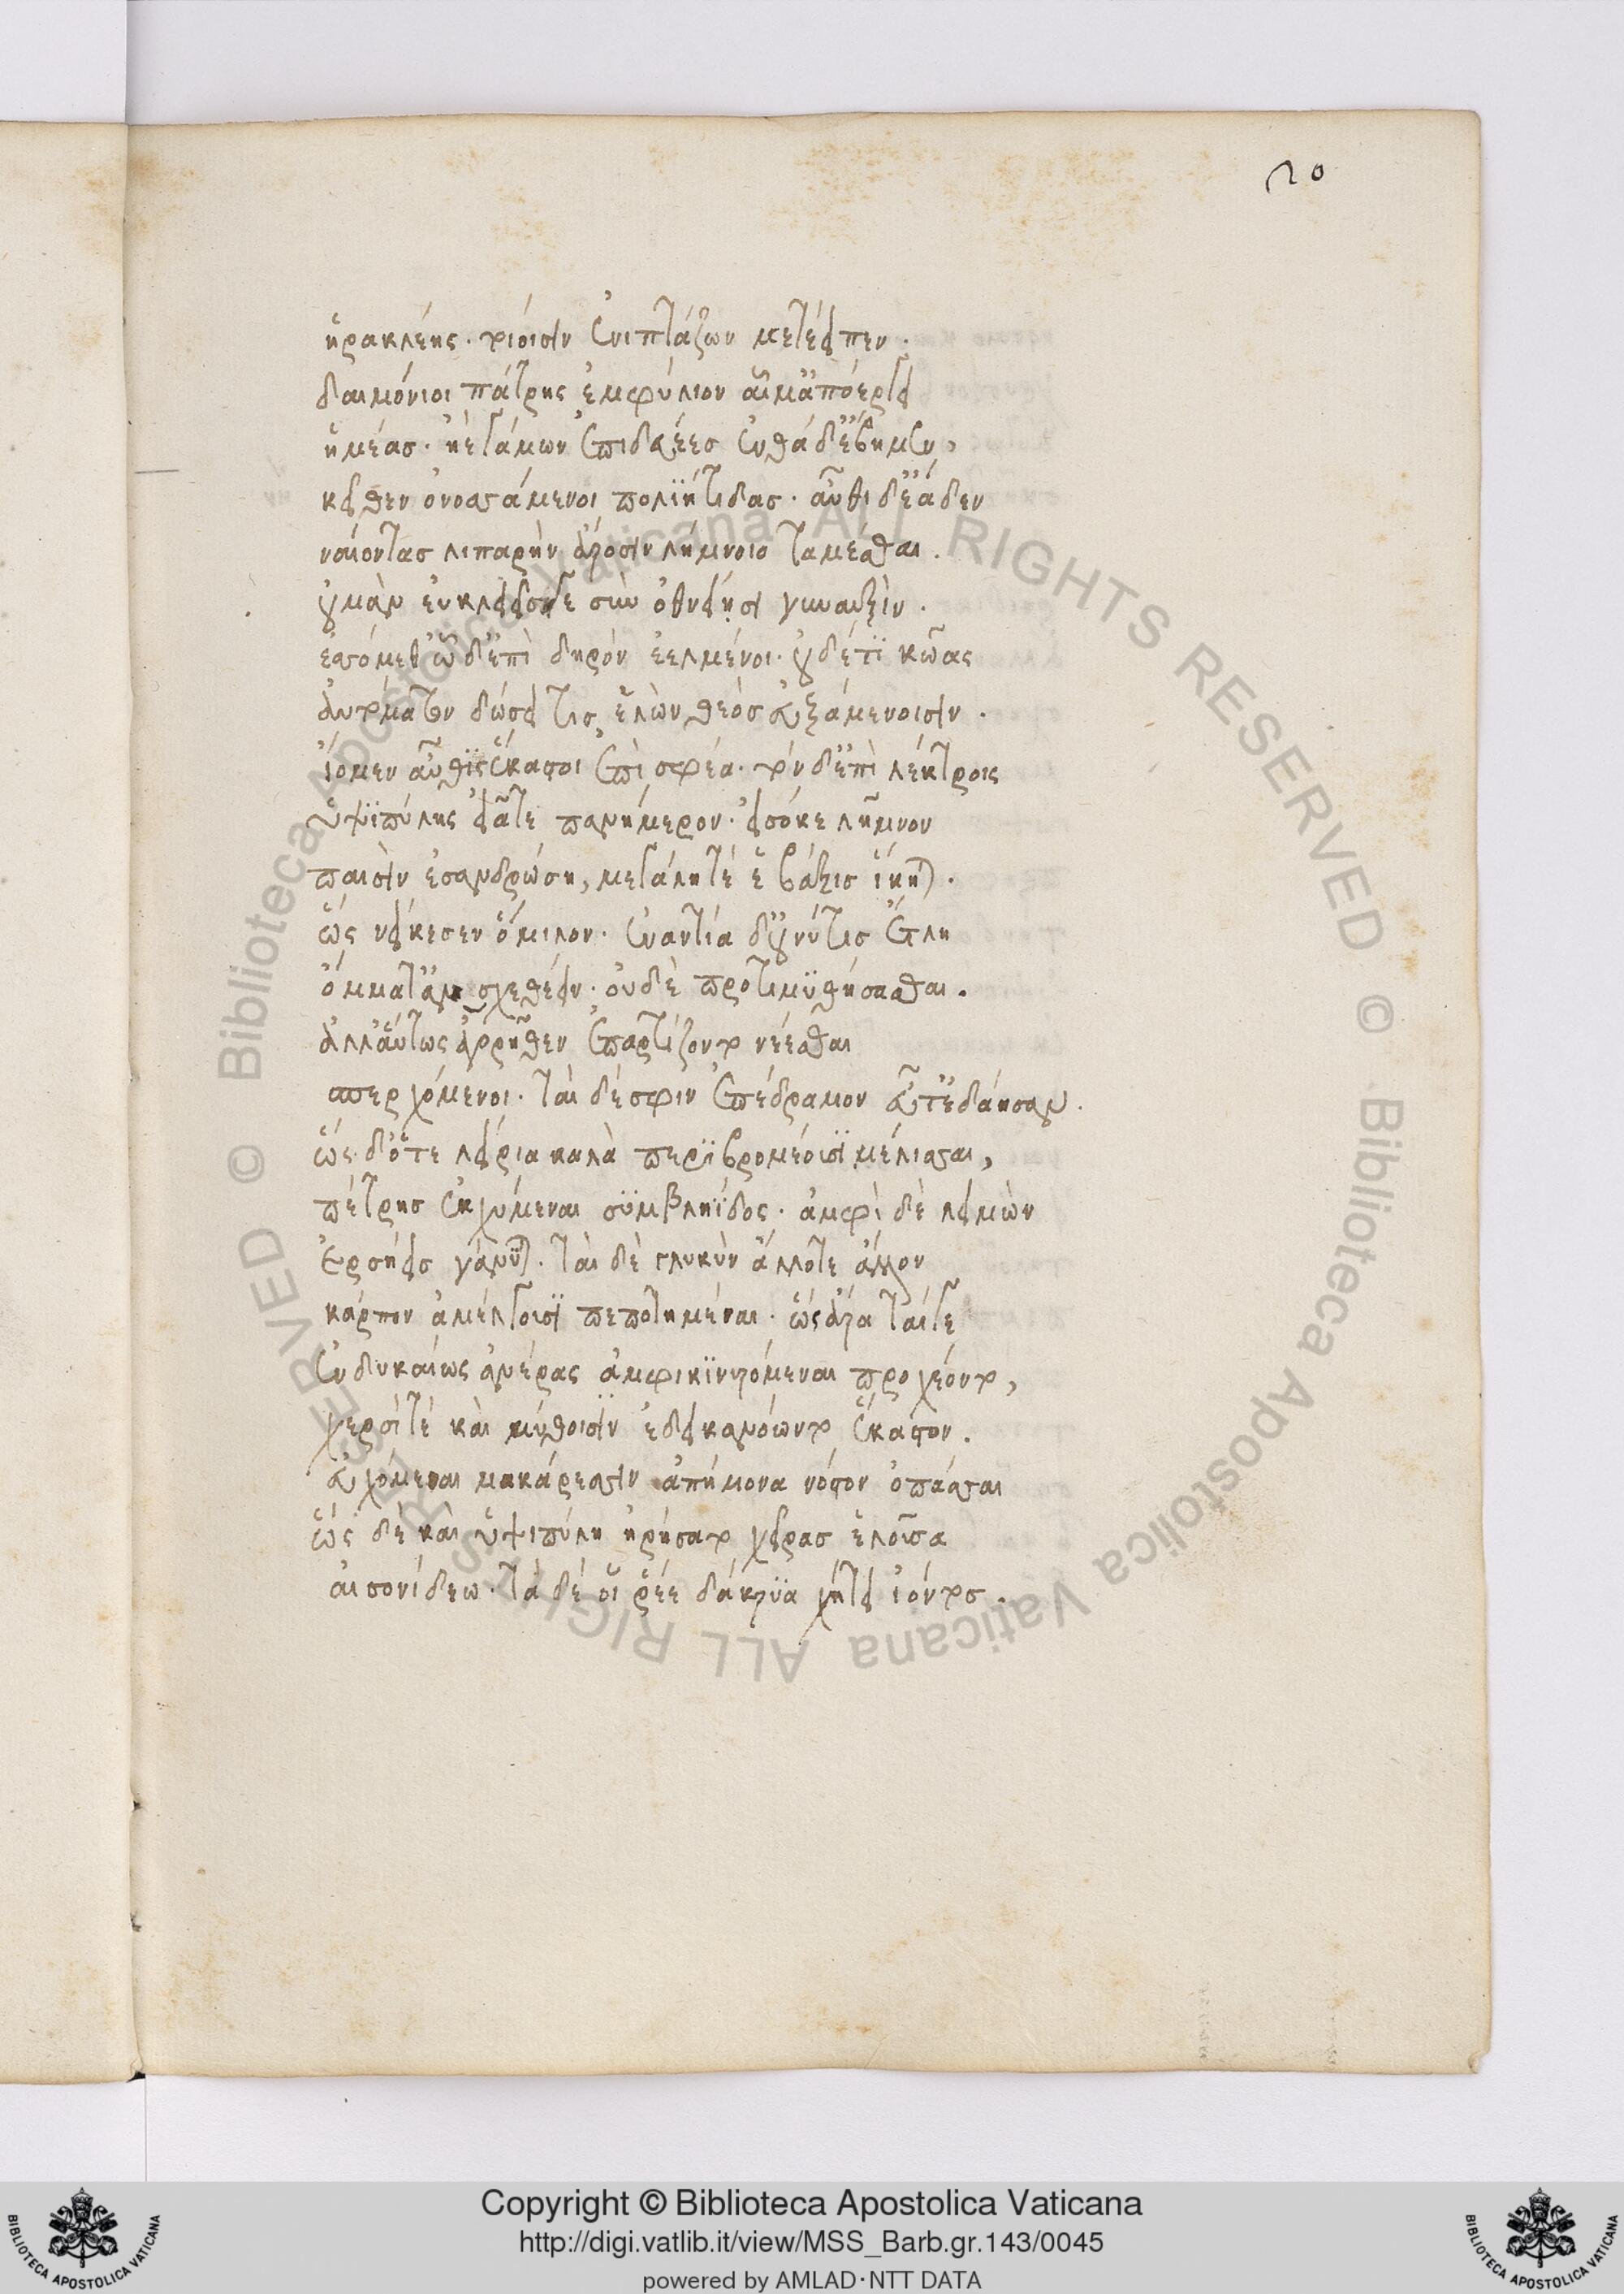 20
ἡρακλέης. τοίοισιν ἐνιπτάζων μετέειπεν.
δαιμόνιοι πάτρης ἐμφύλιον αἷμ' ἀποέργει
ἡμέας. ἠὲ γάμων ἐπιδευέες ἐνθάδ' ἔβημεν,
κεῖθεν ὀνοσσάμενοι πολιήτιδας. αὖθι δ' ἕαδεν
ναίοντας λιπαρὴν ἄροσιν λήμνοιο ταμέσθαι.
οὐ μὰν εὐκλειεῖς γε σὺν ὀθνείῃσι γυναιξὶν.
ἐσσόμεθ' ὧδ' ἐπὶ δηρὸν ἐελμένοι. οὐδέ τι κῶας
αὐτόματον δώσει τις ἑλὼν θεὸς εὐξαμένοισιν.
ἴομεν αὖθις ἕκαστοι ἐπὶ σφέα. τὸν δ' ἐπὶ λέκτροις
ὑψιπύλης εἰᾶτε πανήμερον. εἰσόκε λῆμνον
παισὶν ἐσανδρώσῃ, μεγάλη τέ ἑ βάξις ἵκηται.
ὣς νείκεσεν ὅμιλον. ἐναντία δ' οὔ νύ τις ἔτλη
ὄμματ' ἀνασχεθέειν. οὐδὲ προτιμυθήσασθαι.
ἀλλ' αὔτως ἀγορῆθεν ἐπαρτίζοντο νέεσθαι
σπερχόμενοι. ταὶ δέ σφιν ἐπέδραμον εὖτ' ἐδάησαν.
ὡς δ' ὅτε λείρια καλὰ περιβρομέουσι μέλισσαι,
πέτρης ἐκχύμεναι συμβληΐδος. ἀμφὶ δὲ λειμὼν
ἑρσήεις γάνυται. ταὶ δὲ γλυκὺν ἄλλοτε ἄλλον
κάρπον ἀμέλγουσι πεποτημέναι. ὣς ἄρα ταίγε
ἐνδυκαίως ἀνέρας ἀμφικινυρόμεναι προχέοντο,
χερσί τέ καὶ μύθοισιν ἐδεικανόωντο ἕκαστον.
εὐχόμεναι μακάρεσσιν ἀπήμονα νόστον ὀπάσσαι
ὣς δὲ καὶ ὑψιπύλη ἠρήσατο χεῖρας ἑλοῦσα
αἰσονίδεω. τὰ δέ οἱ ῥέε δάκρυα χήτει ἰόντος.
Copyright © Biblioteca Apostolica Vaticana
http://digi.vatlib.it/view/MSS_Barb.gr.143/0045
powered by AMLAD·NTT DATA